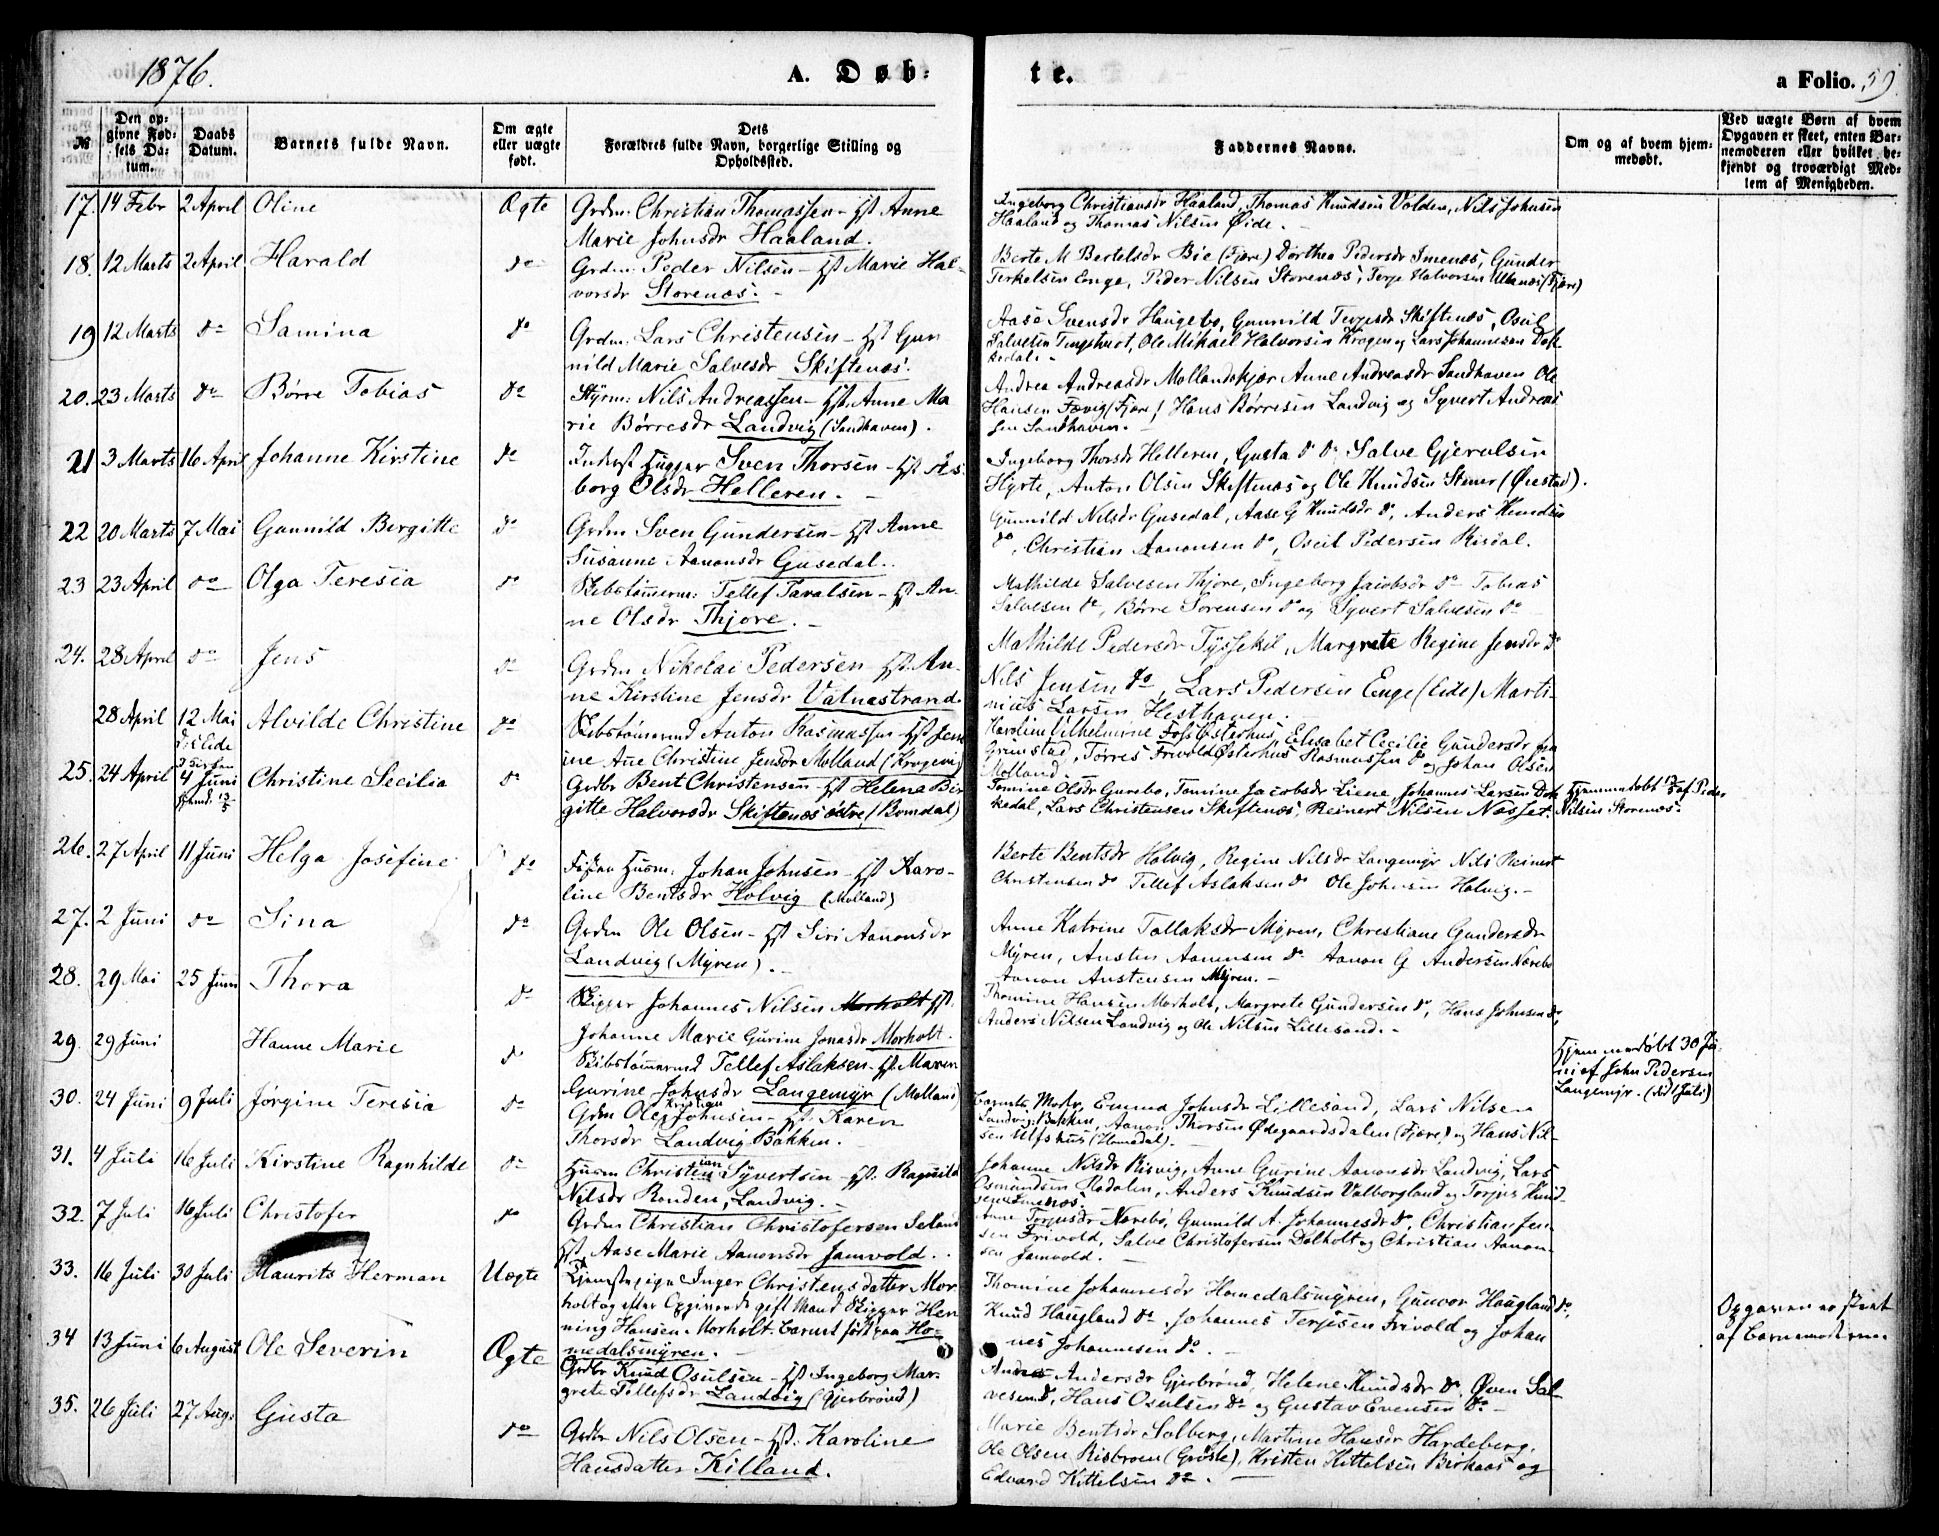 1876.
A. Døb-
te.
a Folio. 59.
№
Den op-
givne Fød-
sels Da-
tum.
Daabs
Datum.
Barnets fulde Navn.
Om ægte
eller uægte
født.
Dets
Forældres fulde Navn, borgerlige Stilling og
Opholdssted.
Faddernes Navne.
Om og af hvem hjem-
medøbt.
Ved uægte Børn af hvem
Opgaven er skeet, enten Bar-
nemoderen eller hvilket be-
kjendt og troværdigt Med-
lem af Menigheden.
17. 14 Febr 2 April Oline Ægte Grdm: Christian Thomassen - Hst Anne
Marie Johnsdr Haaland.
Ingeborg Christiansdr Haaland, Thomas Knudsen Volden, Nils Johnsen
Haaland og Thomas Nilsen Øide.
18. 12 Marts 2 April Harald do Grdm: Peder Nilsen - Hst Marie Hal-
vorsdr Storenæs.
Berte M Bertelsdr Bie (Fjære) Dorthea Pedersdr Imenæs, Gunder
Terkelsen Enge, Peder Nilsen Storenæs, Terje Halvorsen (Fjære)
19 12 Marts do Samina do Grdm: Lars Christensen - Hst Gun
nild Marie Salvesdr Skiftenæs.
Aase Svensdr Haugebo, Gunnild Terjesdr Skiftenæs, Osul
Salvesen Tingstveit, Ole Mikael Halvorsen Krogen og Lars Johannesen Dok
kedal.
20. 23 Marts do Børre Tobias do Styrm: Nils Andreassen - Hst. Anne Ma-
rie Børresdr Landvig (Sandhaven).
Andrea Andreasdr Mollandskjær Anne Andreasdr Sandhaven Ole
Hansen Fævig (Fjære) Hans Børresen Landvig og Syvert Andreas
sen Sandhaven.
21 3 Marts 16 April Johanne Kirstine do Inderst Sven Thorsen - Hst Ås-
borg Olsdr Helleren.
Ingeborg Thorsdr Helleren, Gusta do do Salve Gjerulsen
Hørte, Anton Olsen Skiftenæs og Ole Knudsen Stener (Øiestad).
22 20 Marts 7 Mai Gunnild Bergitte do Grdm Sven Gundersen - Hst Anne
Susanne Aanonsdr Gusedal.
Gunnild Nilsdr Gusedal, Aase G Knudsdr do, Anders Knudsen
do, Christian Aanonsen do, Osuil Pedersen Risdal.
23 23 April do Olga Teresia do Skibstømerm: Tellef Taralsen - Hst An-
ne Olsdr Thjore.
Mathilde Salvesen Thjore, Ingeborg Jacobsdr do Tobias
Salvesen do, Børre Sørensen do og Syvert Salvesen do
24. 28 April do Jens do Grdm Nikolai Pedersen - Hst. An-
ne Kirstine Jensdr Vatnestrand.
Mathilde Pedersdr Tyssekil, Margrete Regine Jensdr do
Nils Jensen do, Lars Pedersen Enge (Eide) Marti-
nius Larsen Hesthagen.
28 April 12 Mai
i Eide
Kirken
Alvilde Christine do Skibstømermd Anton Rasmussen - Hst Jen
ine Ane Christine Jensdr Molland (Krogevig)
Karoline Vilhelmine Foss Østerhus, Elisabet Cecilie Gundersdr fra
Grimstad, Torres Frivold Østerhus Rasmussen do og Johan Olsen
Molland.
25. 24 April 4 Juni
Christine Secilia do Grdbr Bent Christensen - Hst Helene Bir
gitte Halvorsdr Skiftenæs østre (Bomdal)
Tomine Olsdr Gurebo, Tomine Jacobsdr Liene, Johannes Larsen Dok
kedal, Lars Christensen Skiftenæs, Reinert Nilsen Næsset.
Hjemmedøbt af Peder
Nilsen Storenæs.
26. 27 April 11 Juni Helga Josefine do Husm: Johan Johnsen - Hst Karo-
line Bentsdr Holvig (Molland)
Berte Bentsdr Holvig, Regine Nilsdr Langemyr Nils Reinert
Christensen do Tellef Aslaksen do Ole Johnsen Holvig.
27. 2 Juni do Sina do Grdm Ole Olsen - Hst Siri Aanonsdr
Landvig (Myren).
Anne Katrine Tallaksdr Myren, Christiane Gundersdr
Myren, Austen Aanonsen do Aanon G Andersen Nærebø
Aanon Austensen Myren.
28. 29 Mai 25 Juni Thora do Skipper Johannes Nilsen Morholt Hst.
Johanne Marie Gurine Jonasdr Morholt.
Thomine Hansen Morholt, Margrete Gundersen do, Hans Johnsen do,
Anders Nilsen Landvig og Ole Nilsen Lillesand.
29. 29 Juni Hanne Marie do Skibstømermd Tellef Aslaksen - Hst Maren
Gurine Johnsdr Langemyr (Molland)
Hjemmedøbt 30 Ju-
ni af John Pedersen
Langemyr. (død Juli)
30. 24 Juni 9 Juli Jørgine Teresia do Grdm Ole Kristian Johnsen - Hst. Karen
Thorsdr Landvig Bakken.
Barnets Moder, Emma Johnsdr Lillesand, Lars Nilsen
Landvig Bakken, Aanon Thorsen Ødegaardsdalen (Fjære) og Hans Nil-
sen Ufshus (Homedal).
31. 4 Juli 16 Juli Kirstine Ragnhilde do Husm Christen ian Syvertsen - Hst. Ragnild
Nilsdr Ronden, Landvig.
Johanne Nilsdr Risvig, Anne Gurine Aanonsdr Landvig, Lars
Osmundsen Rødalen, Anders Knudsen Valborgland og Torjus Knud-
sen
32. 7 Juli 16 Juli Christofer do Grdm Christian Christofersen Seland
Hst. Aase Marie Aanonsdr Jamvold.
Anne Torjusdr Nærebø, Gunnild A. Johannesdr do, Christian Jen-
sen Frivold, Salve Christofersen Dolholt og Christian Aanon-
sen Jamvold.
33. 16 Juli 30 Juli Maurits Herman Uægte Tjenestepige Inger Christensdatter Mor-
holt og efter Opgivende gift Mand Skipper Hen
ning Hansen Morholt. Barnet født paa Ho-
medalsmyren.
Thomine Johannesdr Homedalsmyren, Gunvor Haugland do,
Knud Haugland do, Johannes Terjesen Frivold og Johan
nes Johannesen do.
Opgaven er skeet
af Barnemoderen.
34 13 Juni 6 August Ole Severin Ægte Grdbr Knud Osulsen - Hst Ingeborg Mar-
grete Tellefsdr Landvig (Gjerbrønd)
Andersdr Gjerbrønd, Helene Knudsdr do, Øven Sal-
vesen do, Hans Osulsen do og Gustav Evensen do
35. 26 Juli 27 Aug: Gusta do Grdbr Nils Olsen - Hst: Karoline
Hansdatter Killand.
Marie Bentsdr Solberg, Martine Hansdr Hardeberg,
Ole Olsen Risbroen (Groose), Kristen Kittelsen Birkaas og
Edvard Kittelsen do.